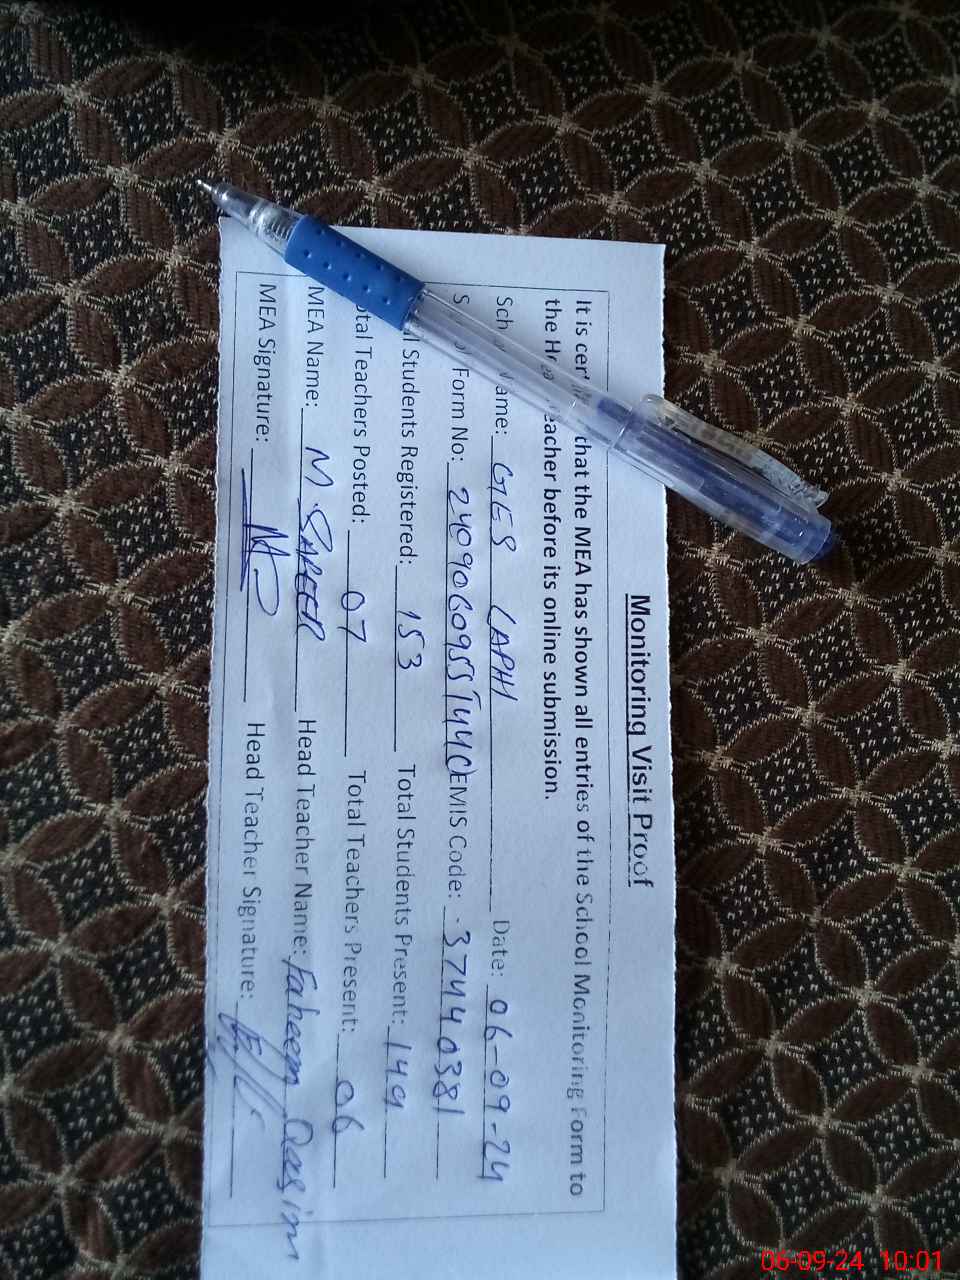 Monitoring Visit Proof
It is that the MEA has shown all entries of the School Monitoring Form to
the before its online submission.
GES Date: 06-09-24
Form No: EMIS Code: 37440381
Students Registered: 153 Total Students Present: 149
Total Teachers Posted: 07 Total Teachers Present: 06
MEA Name: M. Head Teacher Name: Faheem Qasim
MEA Signature: Head Teacher Signature:
06-09-24 10:01